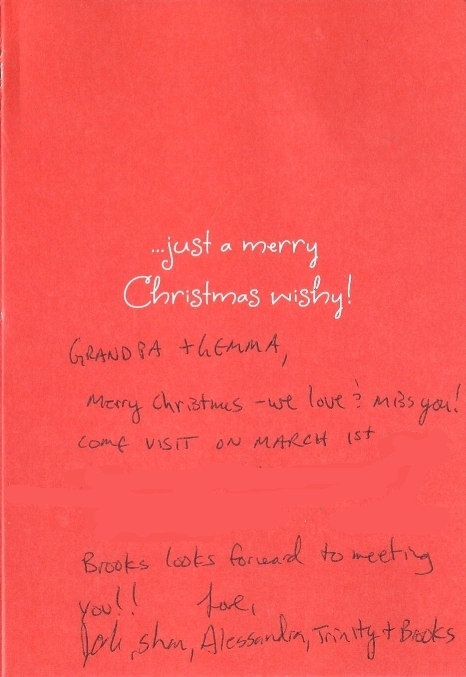 ...just a merry
Christmas wishy!
GRANDPA + GEMMA,
Merry Christmas - we love & miss you!
COME VISIT ON MARCH 1st
Brooks looks forward to meeting
you!! Love,
Alessandra, Trinity + Brooks